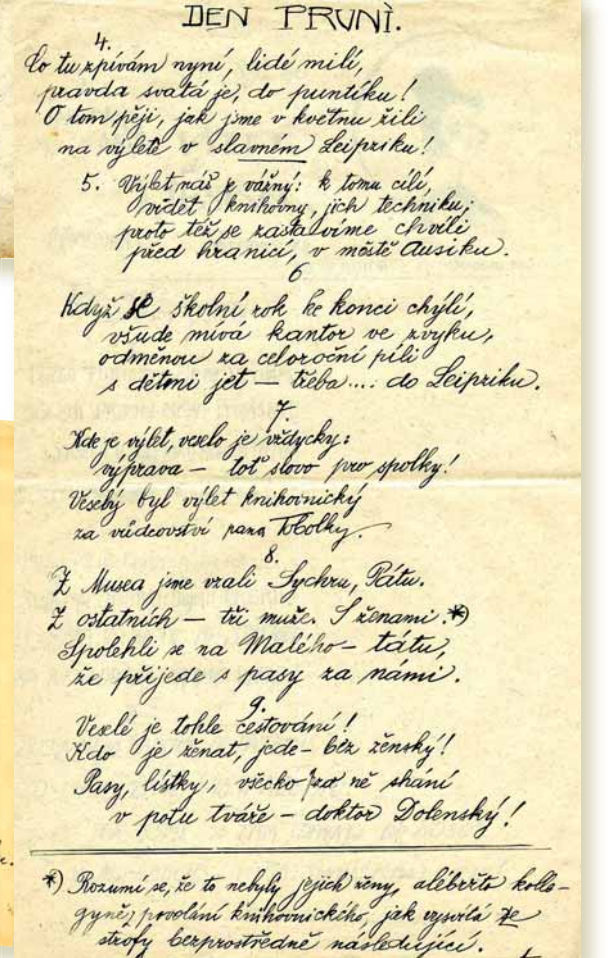 DEN PRVNÌ.
4.
Co tu zpívám nyní, lidé milí,
pravda svatá je, do puntíku!
O tom pěji, jak jsme v květnu žili
na výletě v slavném Leipziku!
5. Výlet náš je vážný: k tomu cílí,
vidět knihovny, jich techniku;
proto též se zastavíme chvíli
před hranicí, v městě Ausiku.
6
Když se školní rok ke konci chýlí,
všude mívá kantor ve zvyku,
odměnou za celoroční píli
s dětmi jet — třeba.... do Leipziku.
7.
Kde je výlet, veselo je vždycky:
výprava — toť slovo pro spolky!
Veselý byl výlet knihovnický
za vůdcovství pana Tobolky.
8.
Z Musea jsme vzali Sychru, Pátu.
Z ostatních — tři muže. S ženami.*)
Spolehli se na Malého – tátu,
že přijede s pasy za námi.
9.
Veselé je tohle cestování!
Kdo je ženat, jede – bez ženský!
Pasy, lístky, všecko za ně shání
v potu tváře – doktor Dolenský!
*) Rozumí se, že to nebyly jejich ženy, alébržto kolle-
gyně, povolání knihovnického, jak vysvítá ze
strofy bezprostředně následující.